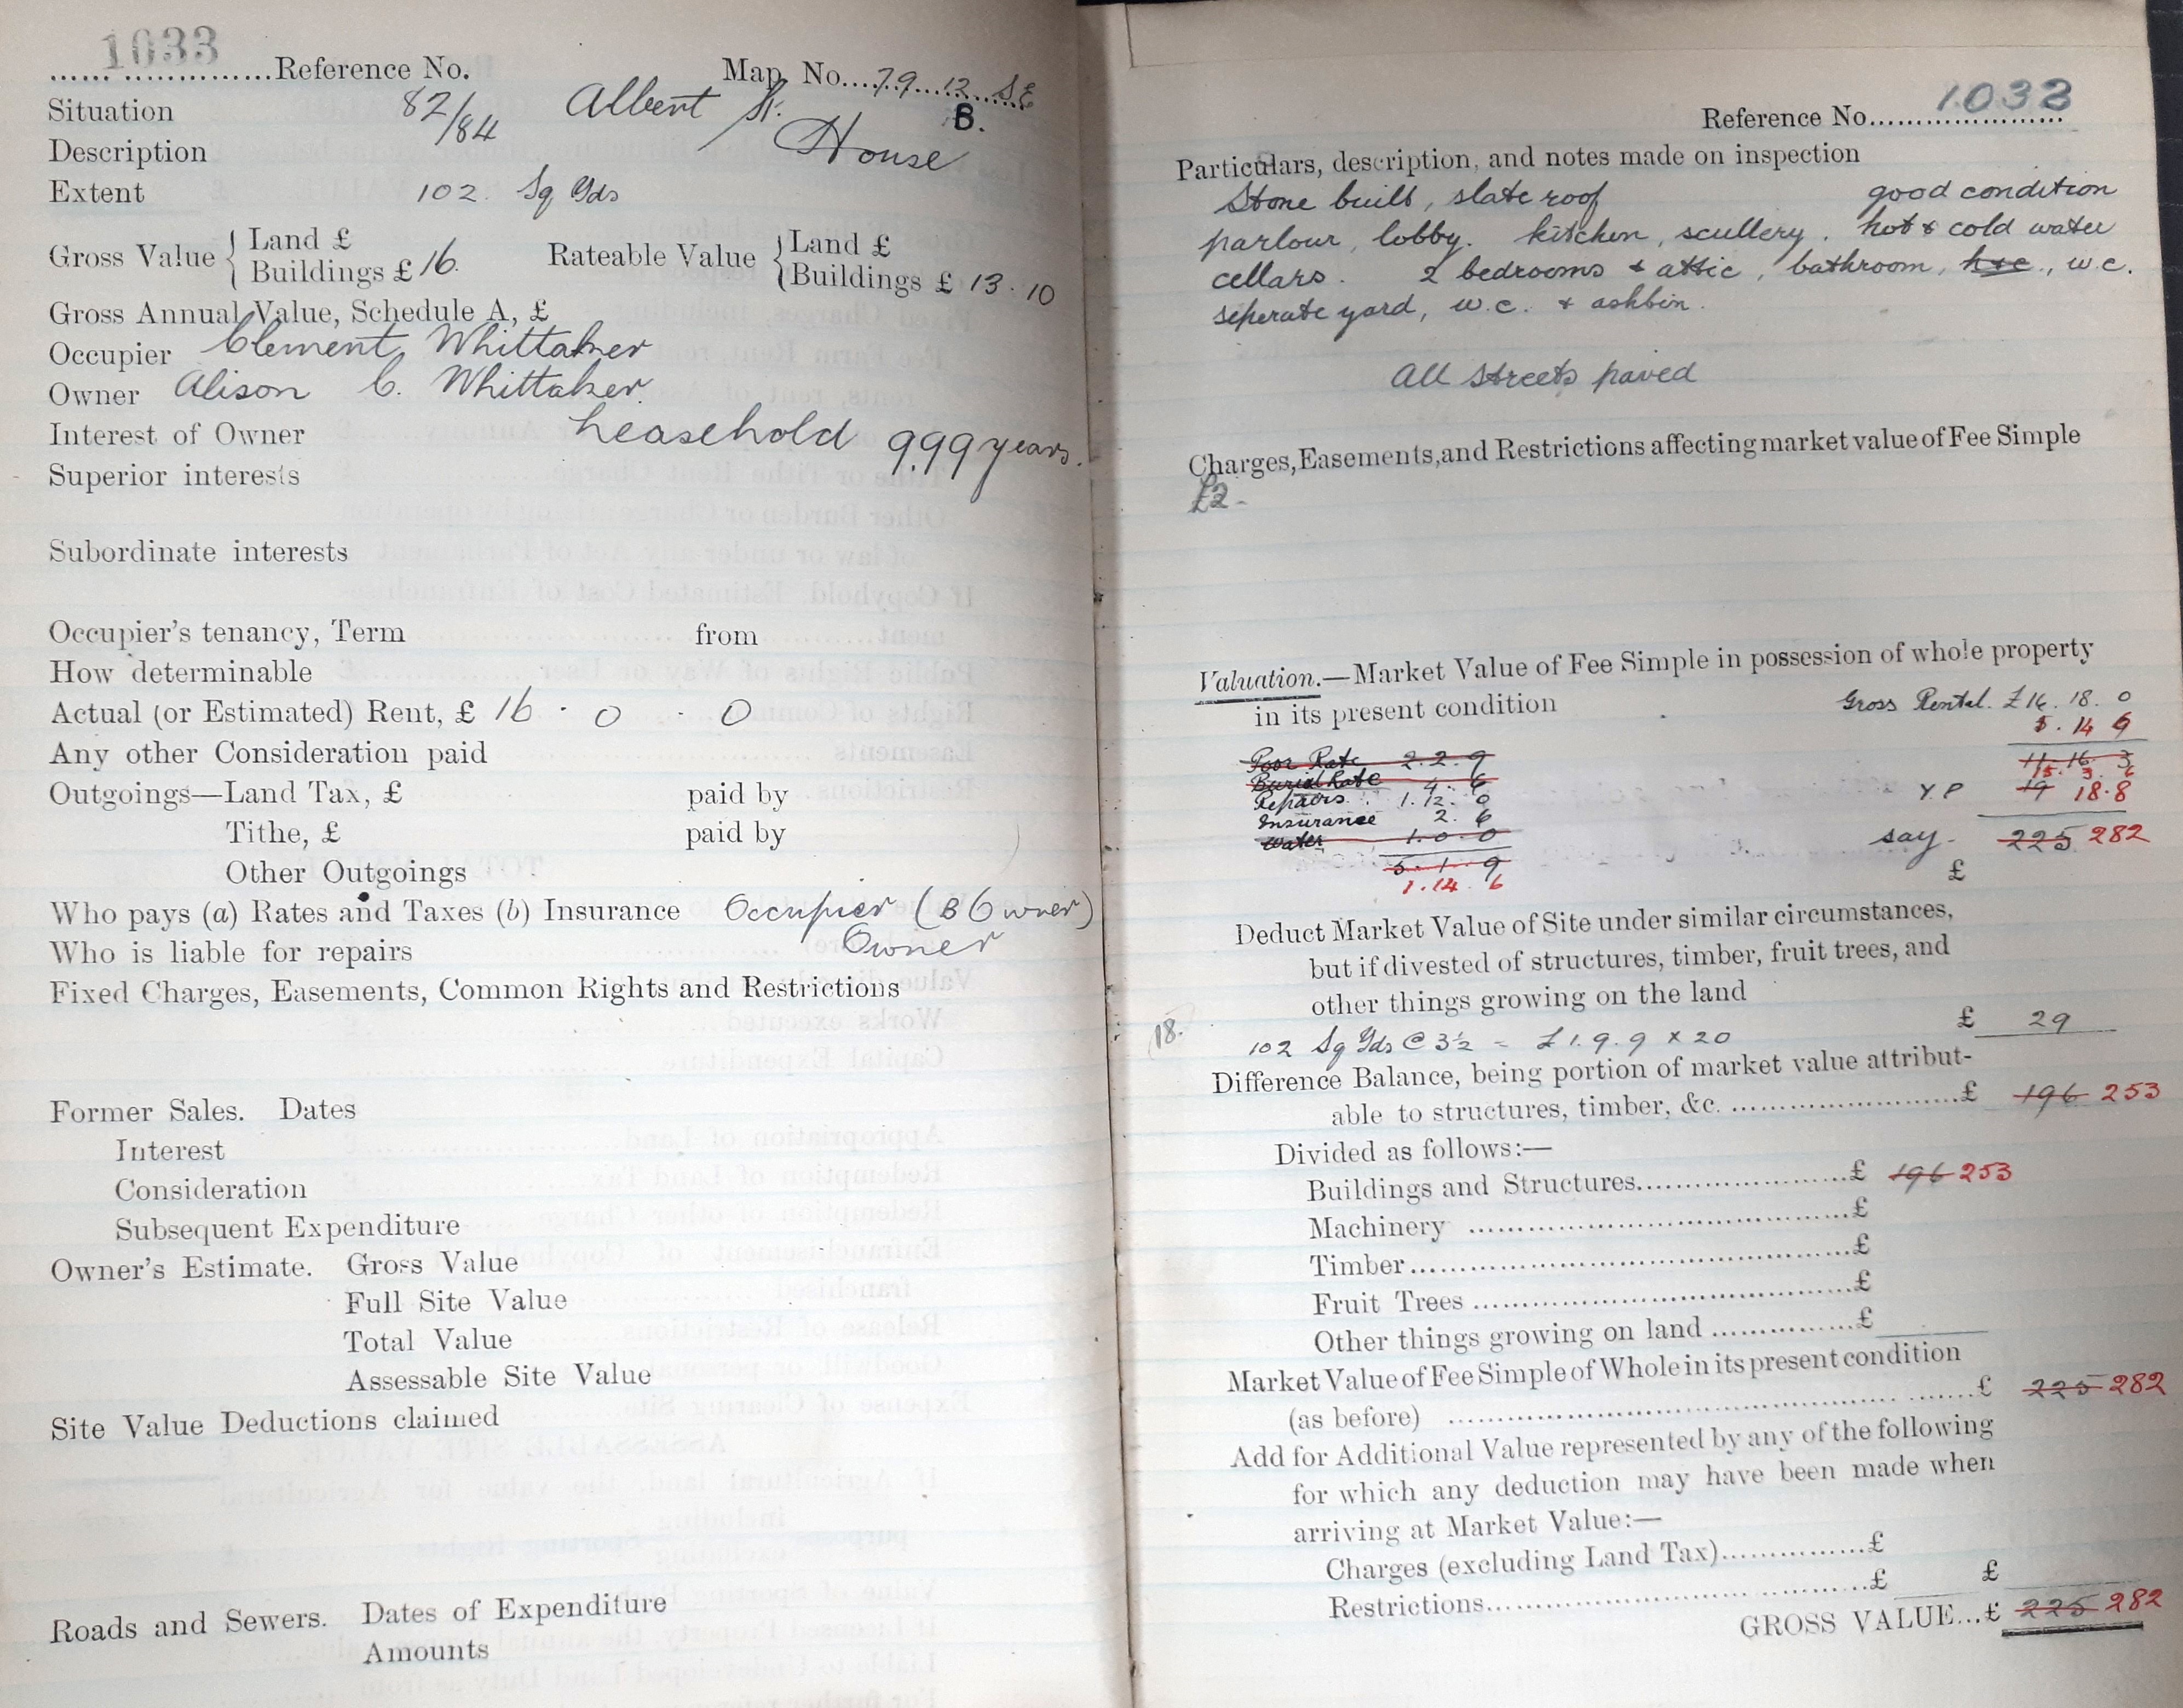 1033
...... ..............Reference No. Map No....79...12...SE
B.
Situation 82/84 Albert St.
Description House
Extent 102. Sq Yds
Gross Value { Land £
Buildings £ 16. Rateable Value { Land £
Buildings £ 13.10
Gross Annual Value, Schedule A, £
Occupier Clement Whittaker
Owner Alison C. Whittaker.
Interest of Owner Leasehold 999 years.
Superior interests
Subordinate interests
Occupier's tenancy, Term from
How determinable
Actual (or Estimated) Rent, £ 16 . 0 . 0
Any other Consideration paid
Outgoings—Land Tax, £ paid by
Tithe, £ paid by
Other Outgoings
Who pays (a) Rates and Taxes (b) Insurance Occupier (B Owner)
Who is liable for repairs Owner
Fixed Charges, Easements, Common Rights and Restrictions
Former Sales. Dates
Interest
Consideration
Subsequent Expenditure
Owner's Estimate. Gross Value
Full Site Value
Total Value
Assessable Site Value
Site Value Deductions claimed
Roads and Sewers. Dates of Expenditure
Amounts
Reference No. 1033
Particulars, description, and notes made on inspection
Stone built, slate roof good condition
parlour, lobby. kitchen, scullery. hot & cold water
cellars. 2 bedrooms & attic, bathroom, h&c., w.c.
seperate yard, w.c. & ashbin.
All streets paved
Charges, Easements, and Restrictions affecting market value of Fee Simple
£2-
Valuation.—Market Value of Fee Simple in possession of whole property
in its present condition Gross Rental. £16. 18. 0
14
Poor Rate 2. 2. 9 11. 16. 3
Burial Rate 4. 6 15. 3. 6
Repairs 1. 12. 0 Y P 19 18.8
Insurance 2. 6
Water 1. 0. 0 say. 225 282
5. 1. 9 £
1. 14. 6
Deduct Market Value of Site under similar circumstances,
but if divested of structures, timber, fruit trees, and
other things growing on the land
18. 102 Sq Yds @ 3½ = £1. 9. 9 x 20 £ 29
Difference Balance, being portion of market value attribut-
able to structures, timber, &c. ........................£ 196 253
Divided as follows:—
Buildings and Structures......................£ 196 253
Machinery ......................................£
Timber............................................£
Fruit Trees ......................................£
Other things growing on land ...............£
Market Value of Fee Simple of Whole in its present condition
(as before) ................................................£ 225 282
Add for Additional Value represented by any of the following
for which any deduction may have been made when
arriving at Market Value:—
Charges (excluding Land Tax)...............£
Restrictions......................................£ £
GROSS VALUE...£ 225 282